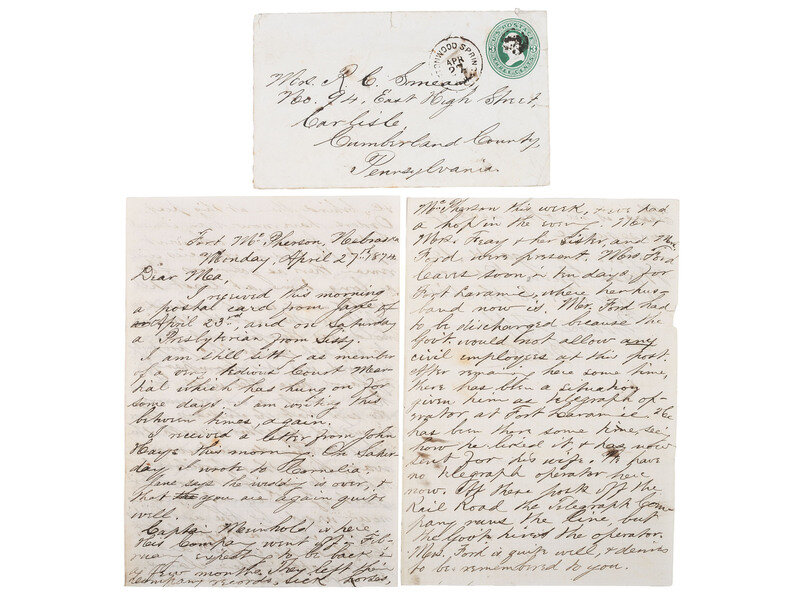 U.S. POSTAGE
THREE CENTS
APR
27
Mrs. R. C. Smead,
No. 94, East High Street,
Carlisle,
Cumberland County,
Pennsylvania.
Fort Mc Pherson, Nebraska
Monday, April 27th 1874
Dear Ma,
I received this morning
a postal card from Jane of
April 23d, and on Saturday
a Presbyterian from Sissy.
I am still sitting as member
of a Court Mar-
tial which has hung on for
some days. I am writing this
between times, again.
I received a letter from John
Hays this morning. On Satur-
day I wrote to Cornelia.
Jane says the wedding is over, &
that you are again quite
well.
Captain Meinhold is here
His Company went off in Feb-
to be back in
a few months. They left their
company records, sick horses,
McPherson this week, & we had
a hop in the evening. Mr. &
Mrs. Fray & her sister, and Mrs.
Ford were present. Mrs. Ford
leaves soon, in ten days, for
Fort Laramie, where her hus-
band now is. Mr. Ford had
to be discharged because the
Govt. would not allow any
civil employees at this post.
After remaining here some time,
there has been a situation
given him as telegraph op-
erator, at Fort Laramie. He
has been there some time, see
how he liked it, & has now
sent for his wife. We have
no telegraph operator here
now. At these posts off the
Rail Road the telegraph Com-
pany runs the line but
the Gov't hires the operator.
Mrs. Ford is quite well, & desires
to be remembered to you.